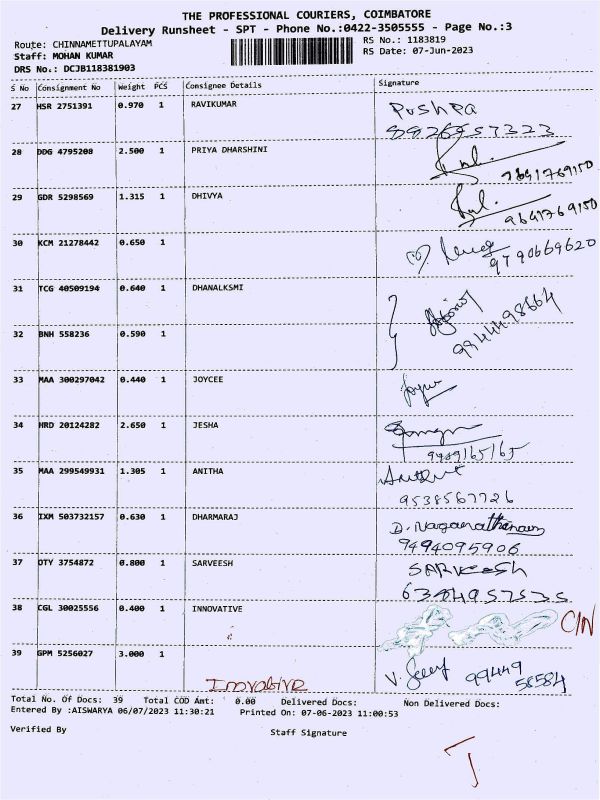 THE PROFESSIONAL COURIERS, COIMBATORE
Delivery Runsheet - SPT - Phone No.:0422-3505555 - Page No.:3
Route: CHINNAMETTUPALAYAM RS No.: 1183819
Staff: MOHAN KUMAR RS Date: 07-Jun-2023
DRS No.: DCJB118381903
S No Consignment No Weight PCS Consignee Details Signature
27 HSR 2751391 0.970 1 RAVIKUMAR Pushpa
28 DDG 4795208 2.500 1 PRIYA DHARSHINI
29 GDR 5298569 1.315 1 DHIVYA
9641769150
30 KCM 21278442 0.650 1
9790669620
31 TCG 40509194 0.640 1 DHANALKSMI
9944498664
32 BNH 558236 0.590 1
33 MAA 300297042 0.440 1 JOYCEE
34 HRD 20124282 2.650 1 JESHA
35 MAA 299549931 1.305 1 ANITHA
9538567726
36 IXM 503732157 0.630 1 DHARMARAJ D. Naganathan
9494095906
37 OTY 3754872 0.800 1 SARVEESH SARVEESH
38 CGL 30025556 0.400 1 INNOVATIVE
39 GPM 5256027 3.000 1
99449
58584
Total No. Of Docs: 39 Total COD Amt: 0.00 Delivered Docs: Non Delivered Docs:
Entered By :AISWARYA 06/07/2023 11:30:21 Printed On: 07-06-2023 11:00:53
Verified By Staff Signature